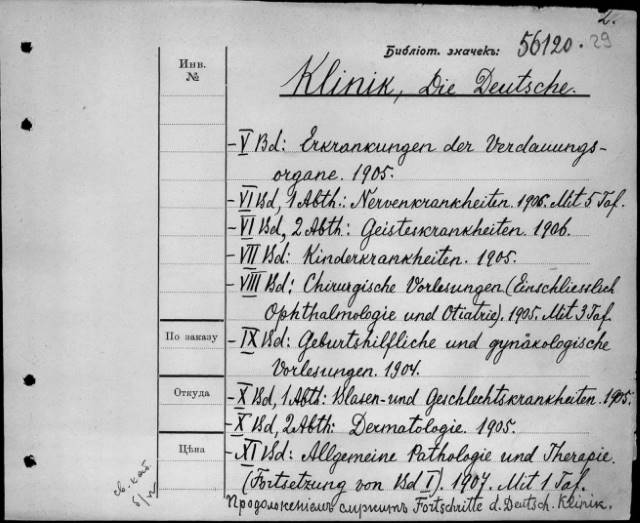 2.
Библіот. значекъ: 56120. 29
Инв.
№
Klinik, Die Deutsche.
- V Bd: Erkrankungen der Verdauungs-
organe. 1905.
- VI Bd, 1 Abth.: Nervenkrankheiten. 1906. Mit 5 Taf.
- VI Bd, 2 Abth: Geisteskrankheiten. 1906.
- VII Bd: Kinderkrankheiten. 1905.
- VIII Bd: Chirurgische Vorlesungen (Einschliesslich
Ophthalmologie und Otiatrie). 1905. Mit 3 Taf.
По заказу
- IX Bd: Geburtshilfliche und gynäkologische
Vorlesungen. 1904.
Откуда
- X Bd, 1 Abth: Blasen- und Geschlechtskrankheiten. 1905.
- X Bd, 2 Abth: Dermatologie. 1905.
Цѣна
- XI Bd: Allgemeine Pathologie und Therapie.
(Fortsetzung von Bd I). 1907. Mit 1 Taf.
Продолженіемъ служитъ Fortschritte d. Deutsch. Klinik.